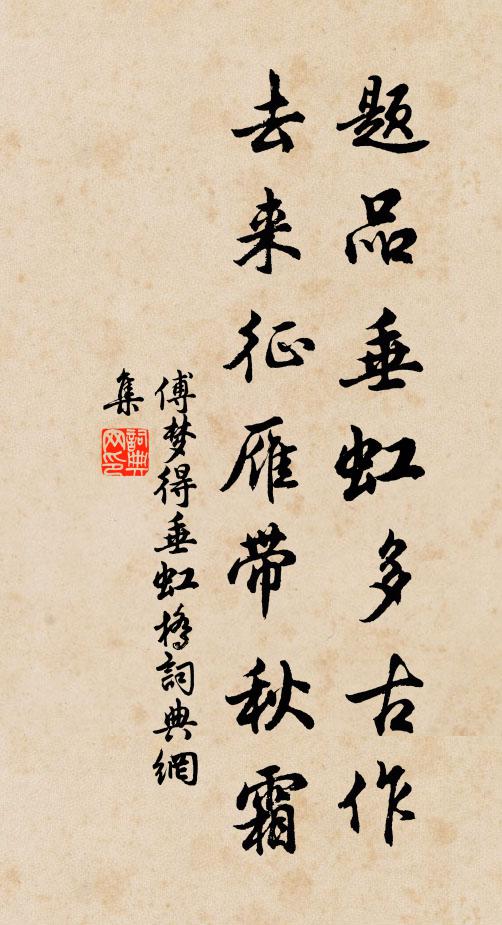 题品垂虹多古作
去来征雁带秋霜
傅梦得垂虹桥詞典網
集
詞典网印